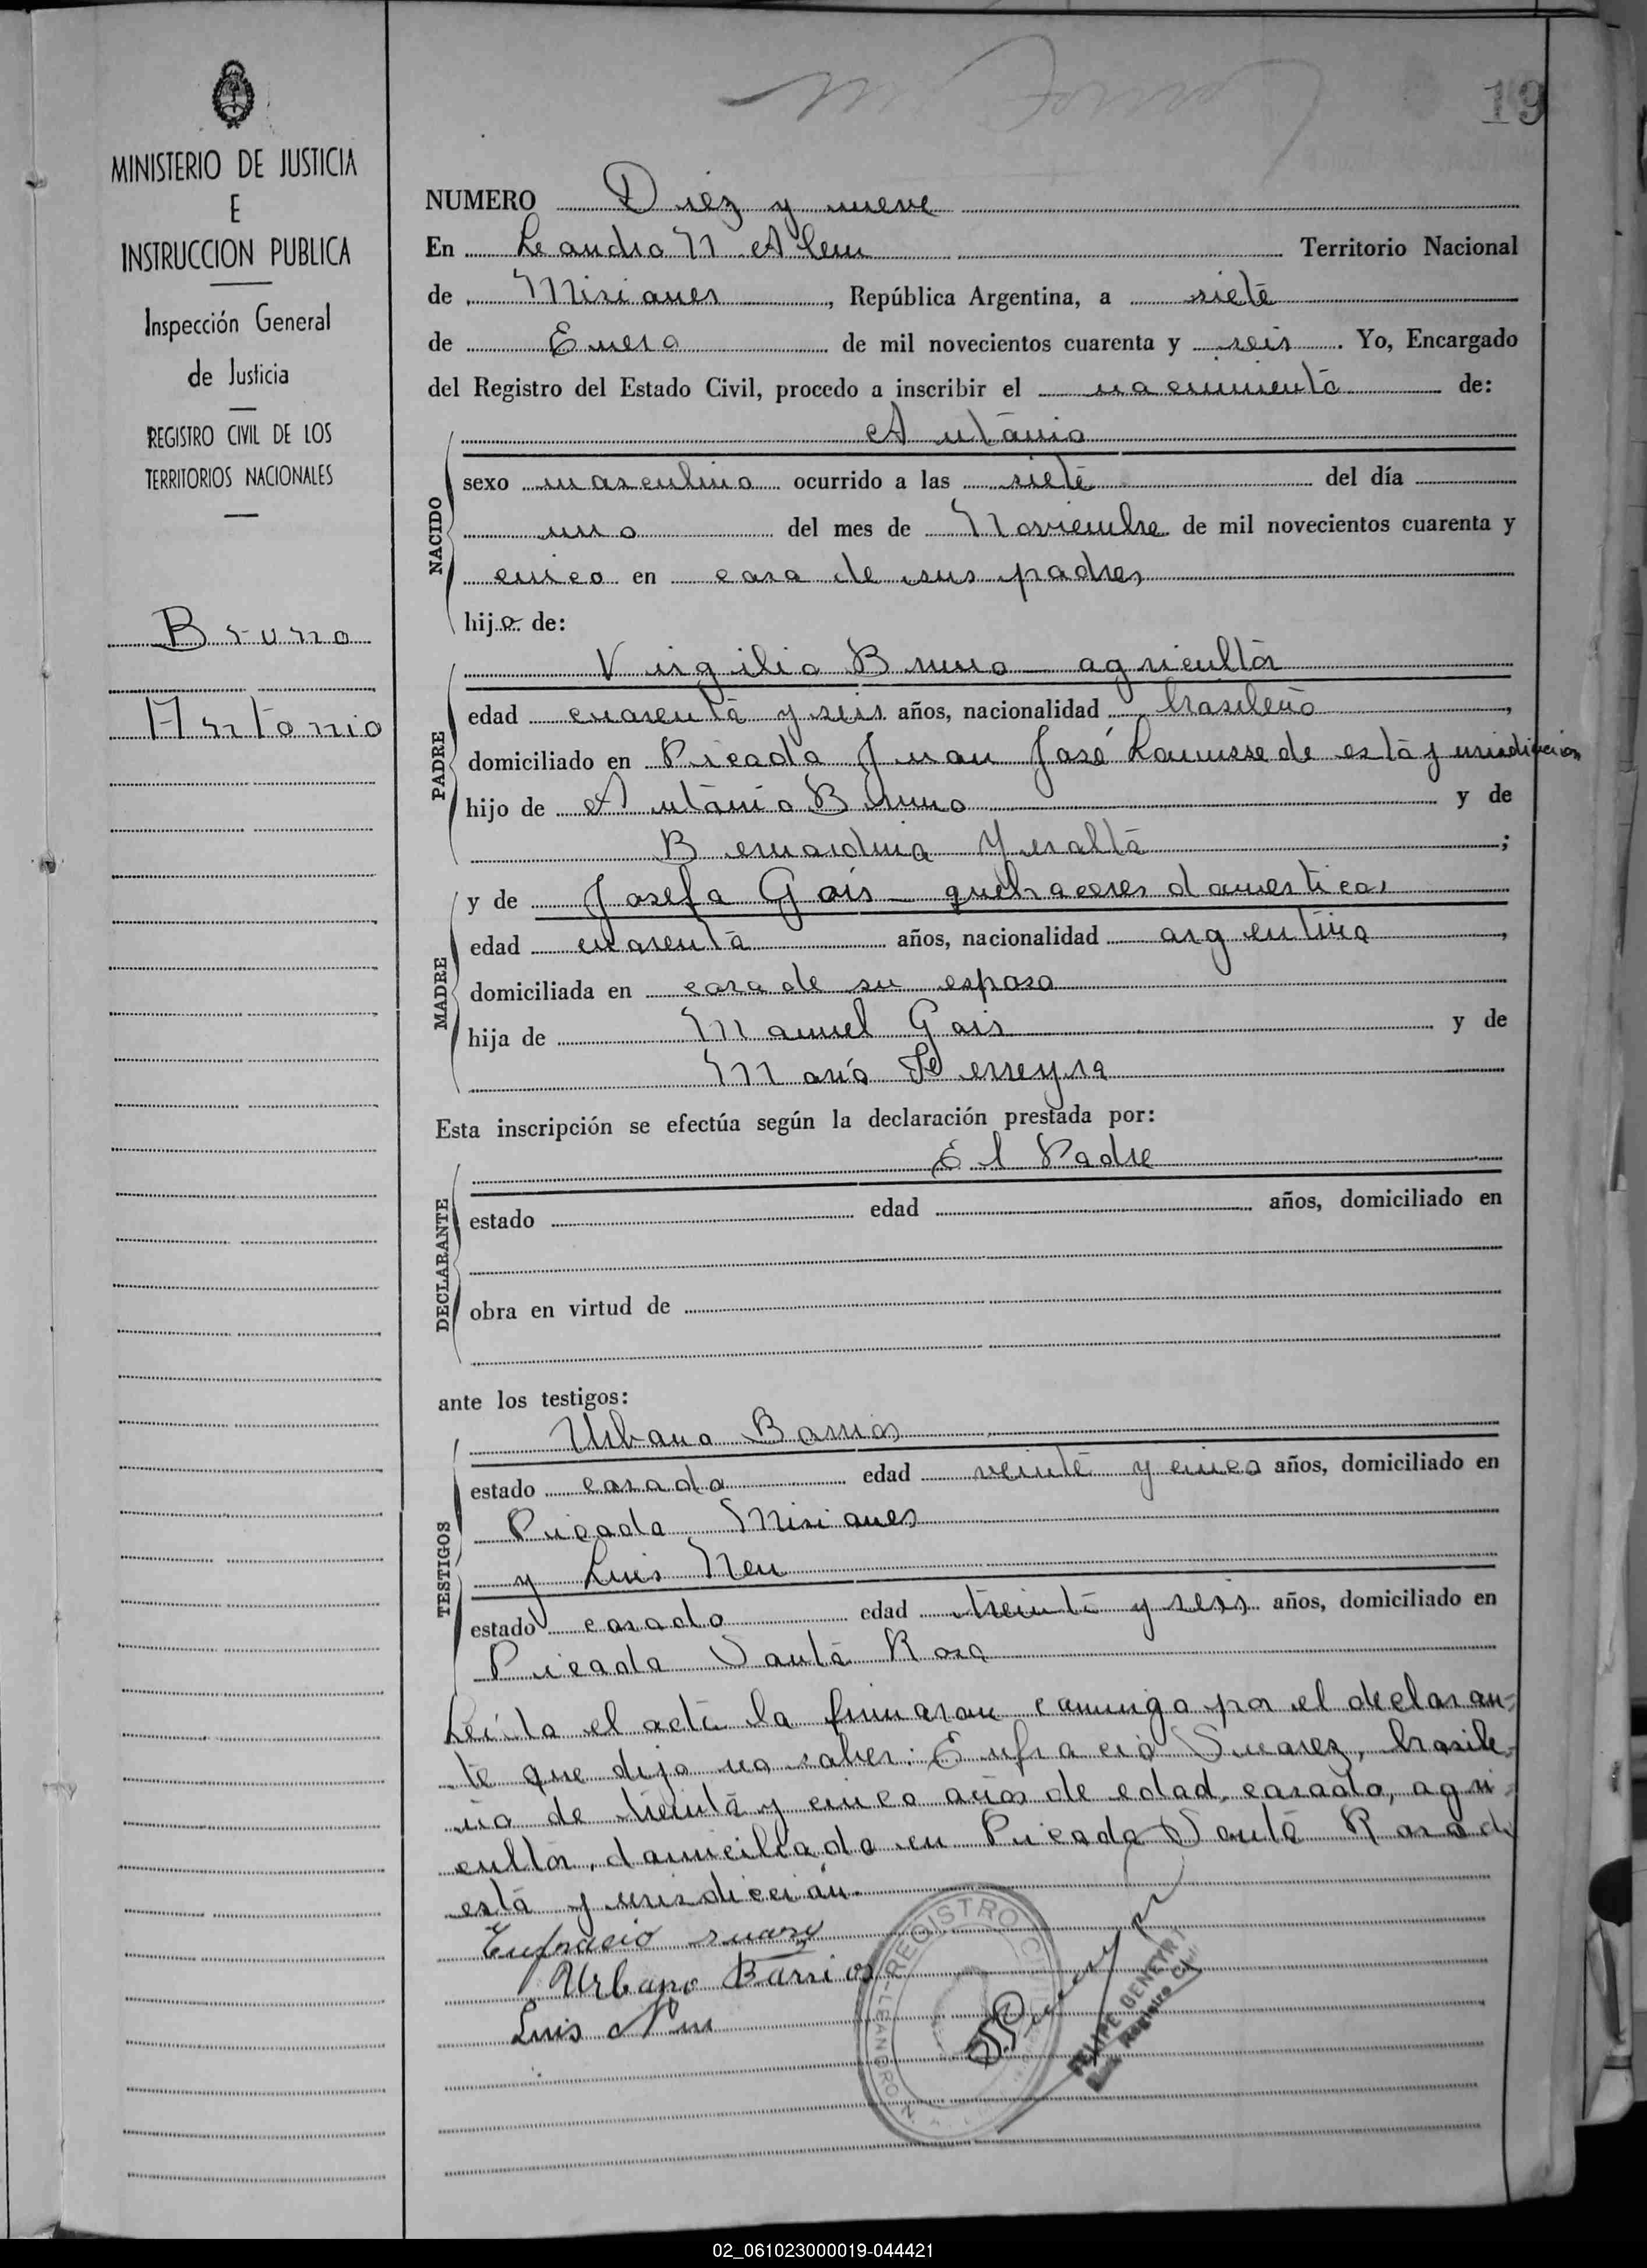 19
MINISTERIO DE JUSTICIA
E
INSTRUCCION PUBLICA
Inspección General
de Justicia
REGISTRO CIVIL DE LOS
TERRITORIOS NACIONALES
Bruno
Antonio
NUMERO Diez y nueve
En Leandro N Alem Territorio Nacional
de Misiones, República Argentina, a siete
de Enero de mil novecientos cuarenta y seis. Yo, Encargado
del Registro del Estado Civil, procedo a inscribir el nacimiento de:
NACIDO
Antonio
sexo masculino ocurrido a las siete del día
uno del mes de Noviembre de mil novecientos cuarenta y
cinco en casa de sus padres
hijo de:
PADRE
Virgilio Bruno - agricultor
edad cuarenta y seis años, nacionalidad brasileño,
domiciliado en Picada Juan José de esta jurisdiccion
hijo de Antonio Bruno y de
Bernardina ;
MADRE
y de Josefa Gois - quehaceres domesticos
edad cuarenta años, nacionalidad argentina,
domiciliada en casa de su esposo
hija de Manuel Gois y de
Maria Ferreyra
Esta inscripción se efectúa según la declaración prestada por:
DECLARANTE
El Padre
estado edad años, domiciliado en
obra en virtud de
ante los testigos:
TESTIGOS
Urbano Barrios
estado casado edad veinte y cinco años, domiciliado en
Picada Misiones
y Luis Neu
estado casado edad treinta y seis años, domiciliado en
Picada Santa Rosa
Leída el acta la firmaron conmigo por el declaran-
te que dijo no saber: Eufracio Suarez, brasile-
ño de treinta y cinco años de edad, casado, agri-
cultor, domiciliado en Picada Santa Rosa de
esta jurisdiccion.
Eufracio suarez
Urbano Barrios
Luis Neu
REGISTRO CIVIL
LEANDRO N.
FELIPE BENEYRI
Registro Civil
02_061023000019-044421